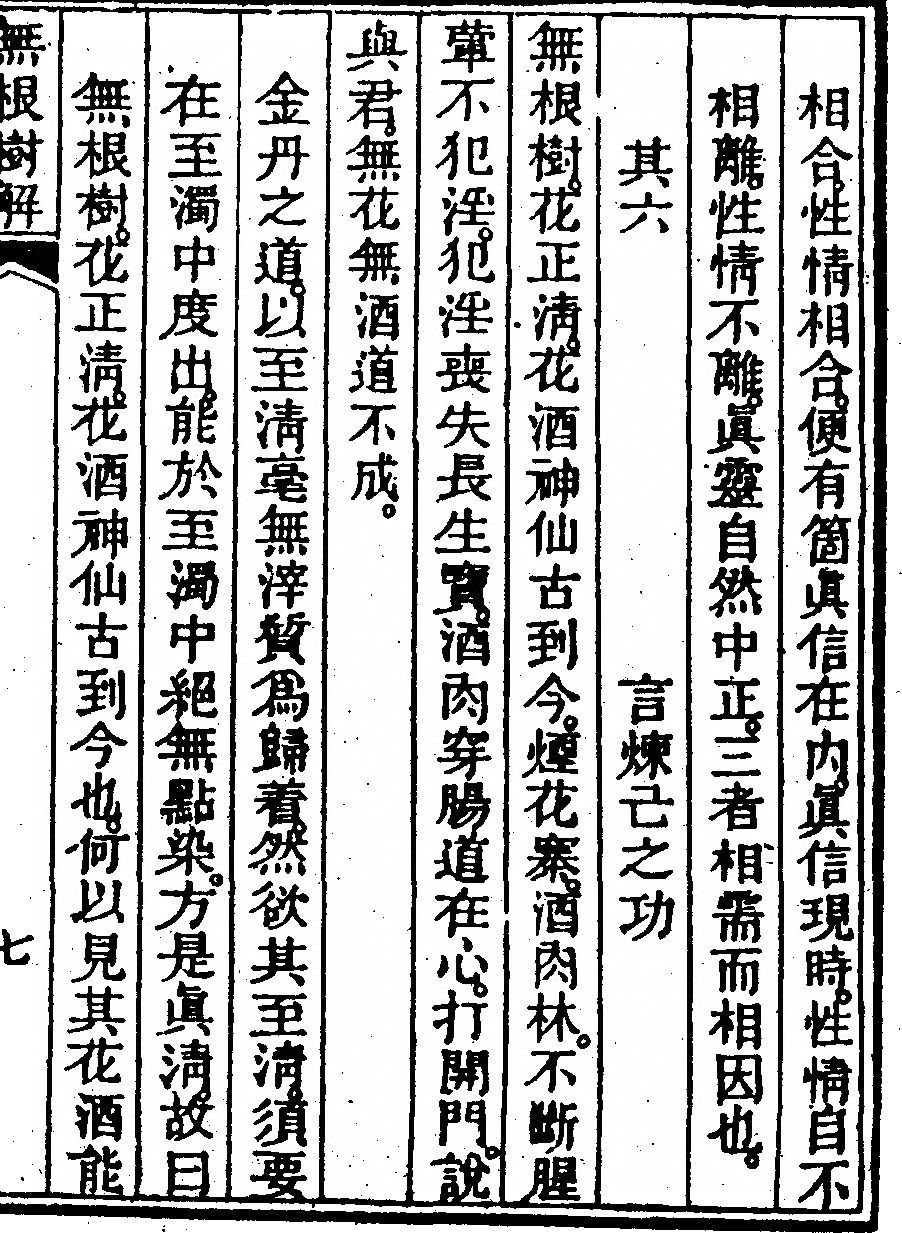 相合。性情相合。便有箇眞信在內。眞信現時。性情自不
相離。性情不離。眞靈自然中正。三者相需而相因也。
其六　言煉己之功
無根樹。花正淸。花酒神仙古到今。煙花寨。酒肉林。不斷腥
葷不犯淫。犯淫喪失長生寶。酒肉穿腸道在心。打開門。說
與君。無花無酒道不成。
金丹之道。以至淸毫無滓質爲歸着。然欲其至淸。須要
在至濁中度出。能於至濁中絕無點染。方是眞淸。故曰
無根樹。花正淸。花酒神仙古到今也。何以見其花酒能
無根樹解
七